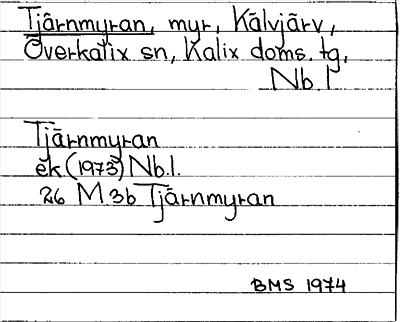 Tjärnmyran, myr, Kälvjärv,
Överkalix sn, Kalix doms. tg,
Nb. l
Tjärnmyran
ek (1973) Nb. l.
26 M 3b Tjärnmyran
BMS 1974